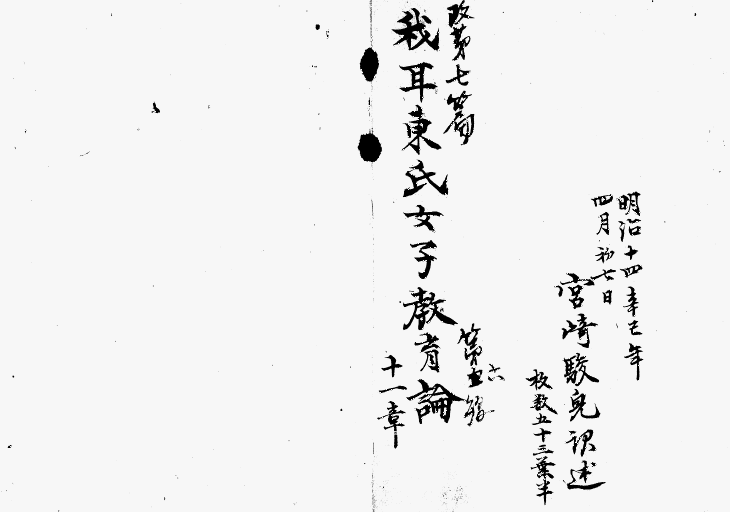 明治十四辛巳年
四月初七日
宮崎駿児訳述
枚数五十三葉半
改第七篇
第五六
我耳東氏女子教育論
十一章